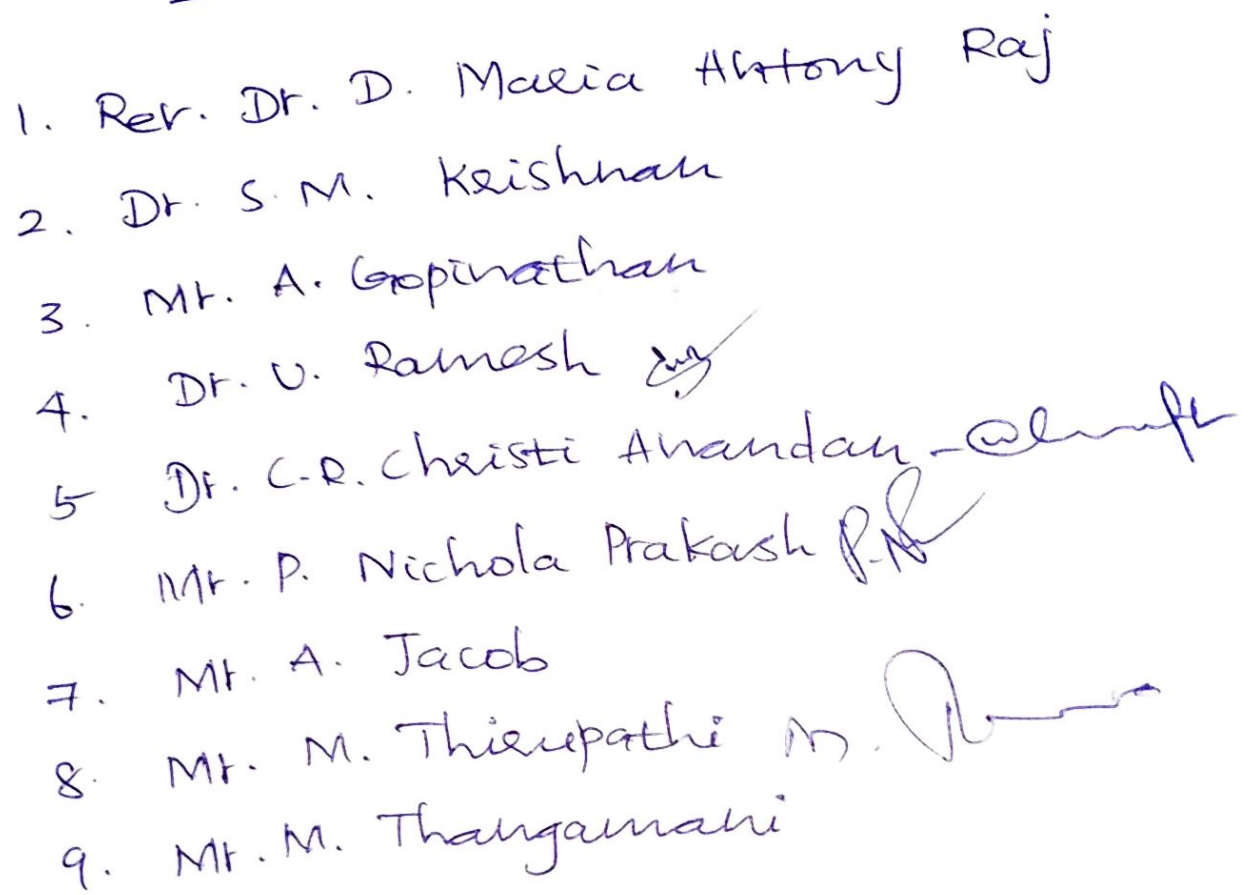 1. Rev. Dr. D. Maria Antony Raj
2. Dr. S. M. Krishnan
3. Mr. A. Gopinathan
4. Dr. U. Ramesh
5 Dr. C.R. Christi Anandan -
6. Mr. P. Nichola Prakash P.N
7. Mr. A. Jacob
8. Mr. M. Thirupathi M.
9. Mr. M. Thangamani